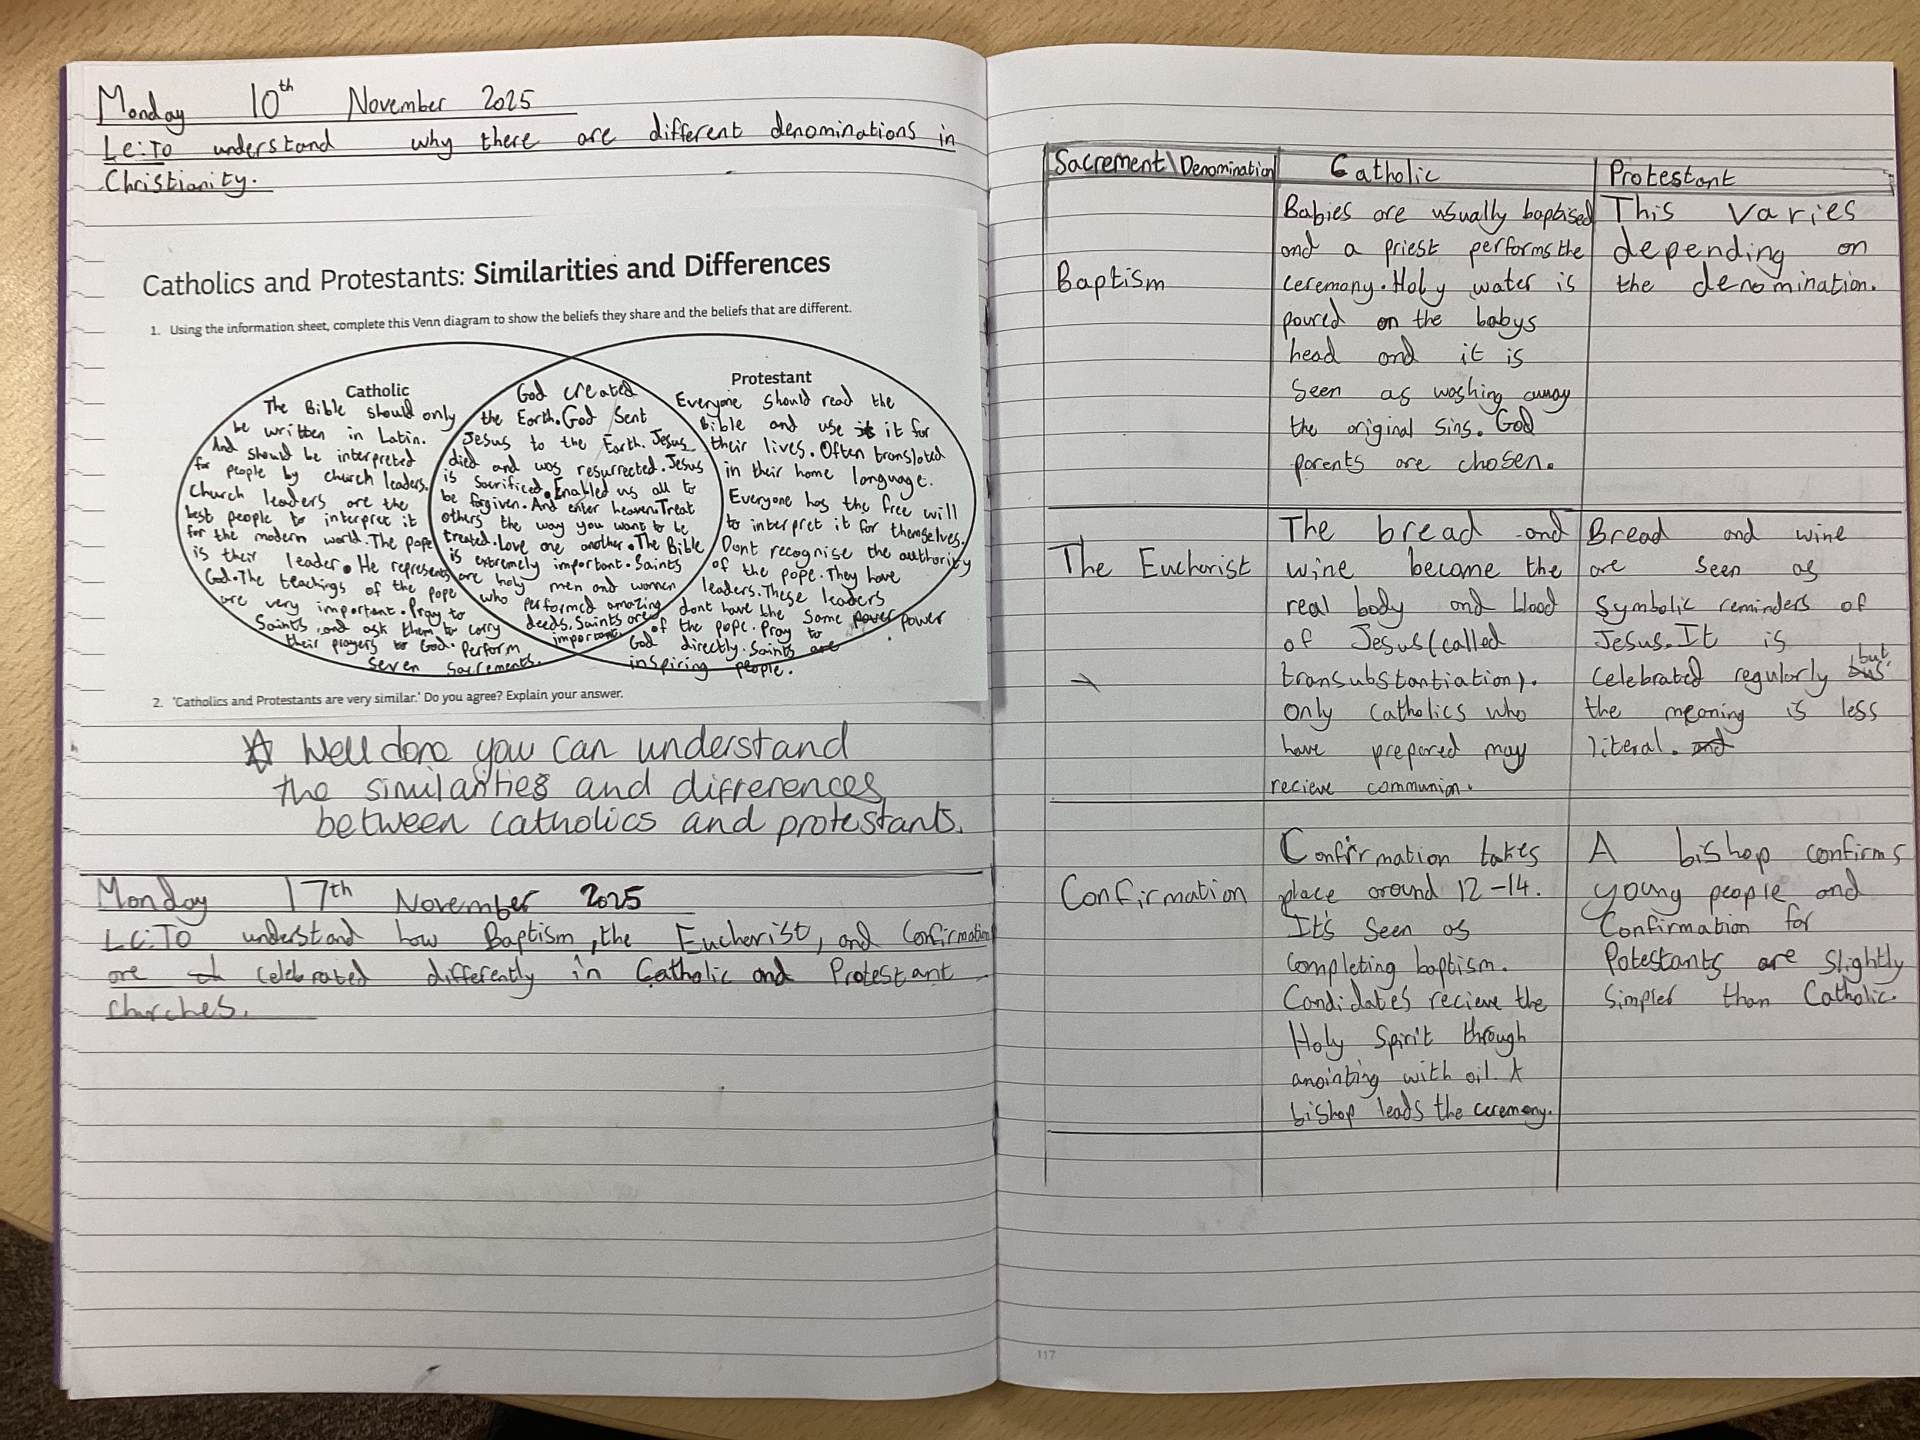 Monday 10th November 2025
LC: To understand why there are different denominations in
Christianity.
Catholics and Protestants: Similarities and Differences
1. Using the information sheet, complete this Venn diagram to show the beliefs they share and the beliefs that are different.
Catholic
The Bible should only
be written in Latin.
And should be interpreted
for people by church leaders.
Church leaders are the
best people to interpret it
for the modern world. The pope
is their leader. He represents
God. The teachings of the pope
are very important. Pray to
Saints, and ask them to carry
their prayers to God. Perform
seven sacrements.
God created
the Earth. God Sent
Jesus to the Earth. Jesus
died and was resurrected. Jesus
is sacrificed. Enabled us all to
be forgiven. And enter heaven. Treat
others the way you want to be
treated. Love one another. The Bible
is extremely important. Saints
are holy men and women
who performed amazing
deeds. Saints are
important.
Protestant
Everyone should read the
Bible and use it for
their lives. Often translated
in their home language.
Everyone has the free will
to interpret it for themselves.
Dont recognise the authority
of the pope. They have
leaders. These leaders
dont have the same power power
of the pope. Pray to
God directly. Saints are
inspiring people.
2. 'Catholics and Protestants are very similar.' Do you agree? Explain your answer.
Well done you can understand
the similarities and differences
between catholics and protestants.
Monday 17th November 2025
LC: To understand how Baptism, the Eucherist, and Confirmation
are celebrated differently in Catholic and Protestant
churches.
Sacrement\Denomination
Catholic
Protestant
Baptism
Babies are usually baptised
and a priest performs the
ceremony. Holy water is
poured on the babys
head and it is
seen as washing away
the original sins. God
parents are chosen.
This varies
depending on
the denomination.
The Eucherist
The bread and
wine become the
real body and blood
of Jesus (called
transubstantiation).
only Catholics who
have prepared may
recieve communion.
Bread and wine
are seen as
symbolic reminders of
Jesus. It is
celebrated regularly but
the meaning is less
literal. and
Confirmation
Confirmation takes
place around 12-14.
It's seen as
completing baptism.
Candidates recieve the
Holy Spirit through
anointing with oil. A
bishop leads the ceremony.
A bishop confirms
young people and
Confirmation for
Potestants are slightly
simpler than Catholic.
117